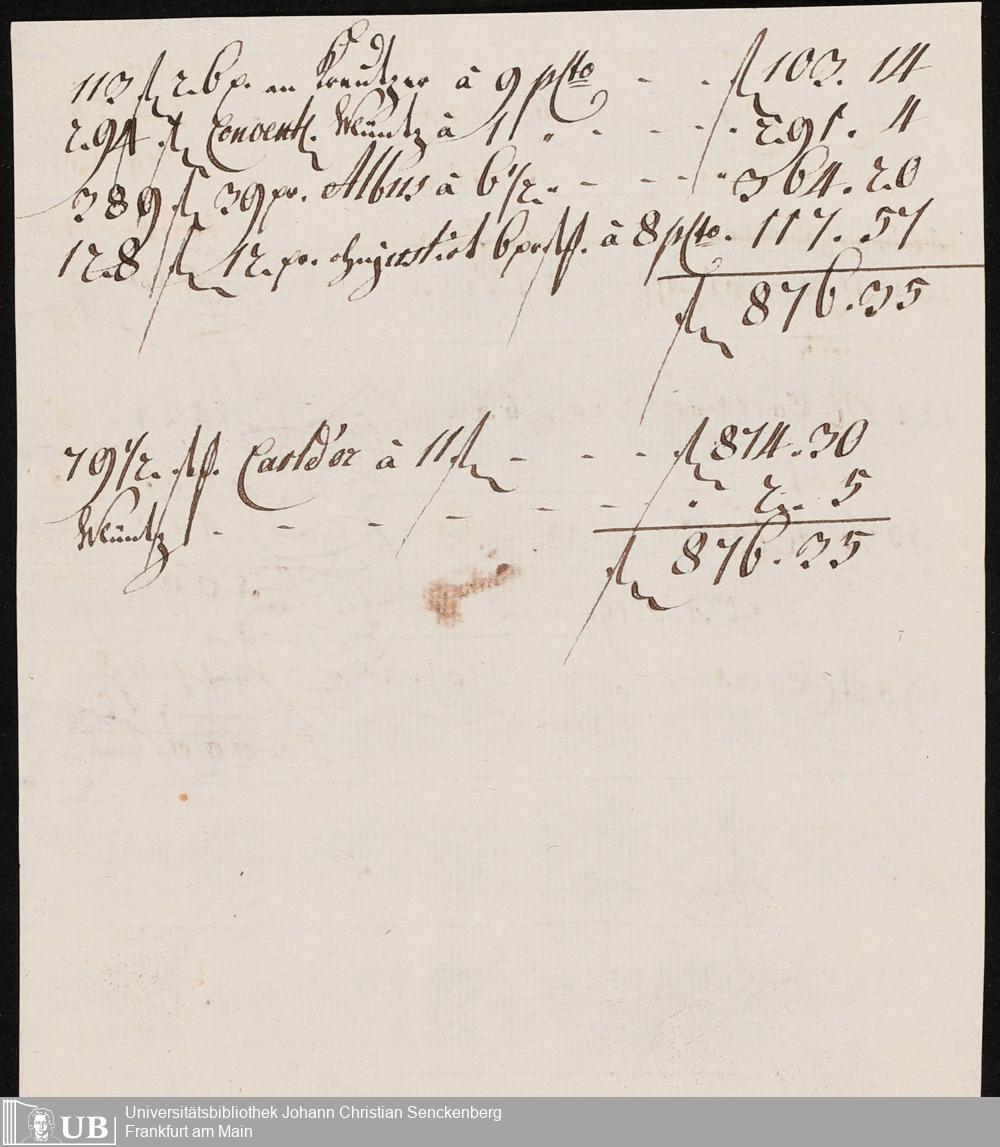 113 f 26 x. an Kreutzer à 9 p Cto - - f 103. 14
294 f Convent. Müntz à 1 " - - - - " 291. 4
389 f 39 xr. Albus à 6 1/2 " - - - " 364. 20
128 f 12 xr. 6 xr à 8 p Cto. 117. 57
f 876. 35
79 1/2 Carld'or à 11 f - - - f 874. 30
Müntz - - - - - - " 2. 5
f 876. 35
UB
Universitätsbibliothek Johann Christian Senckenberg
Frankfurt am Main